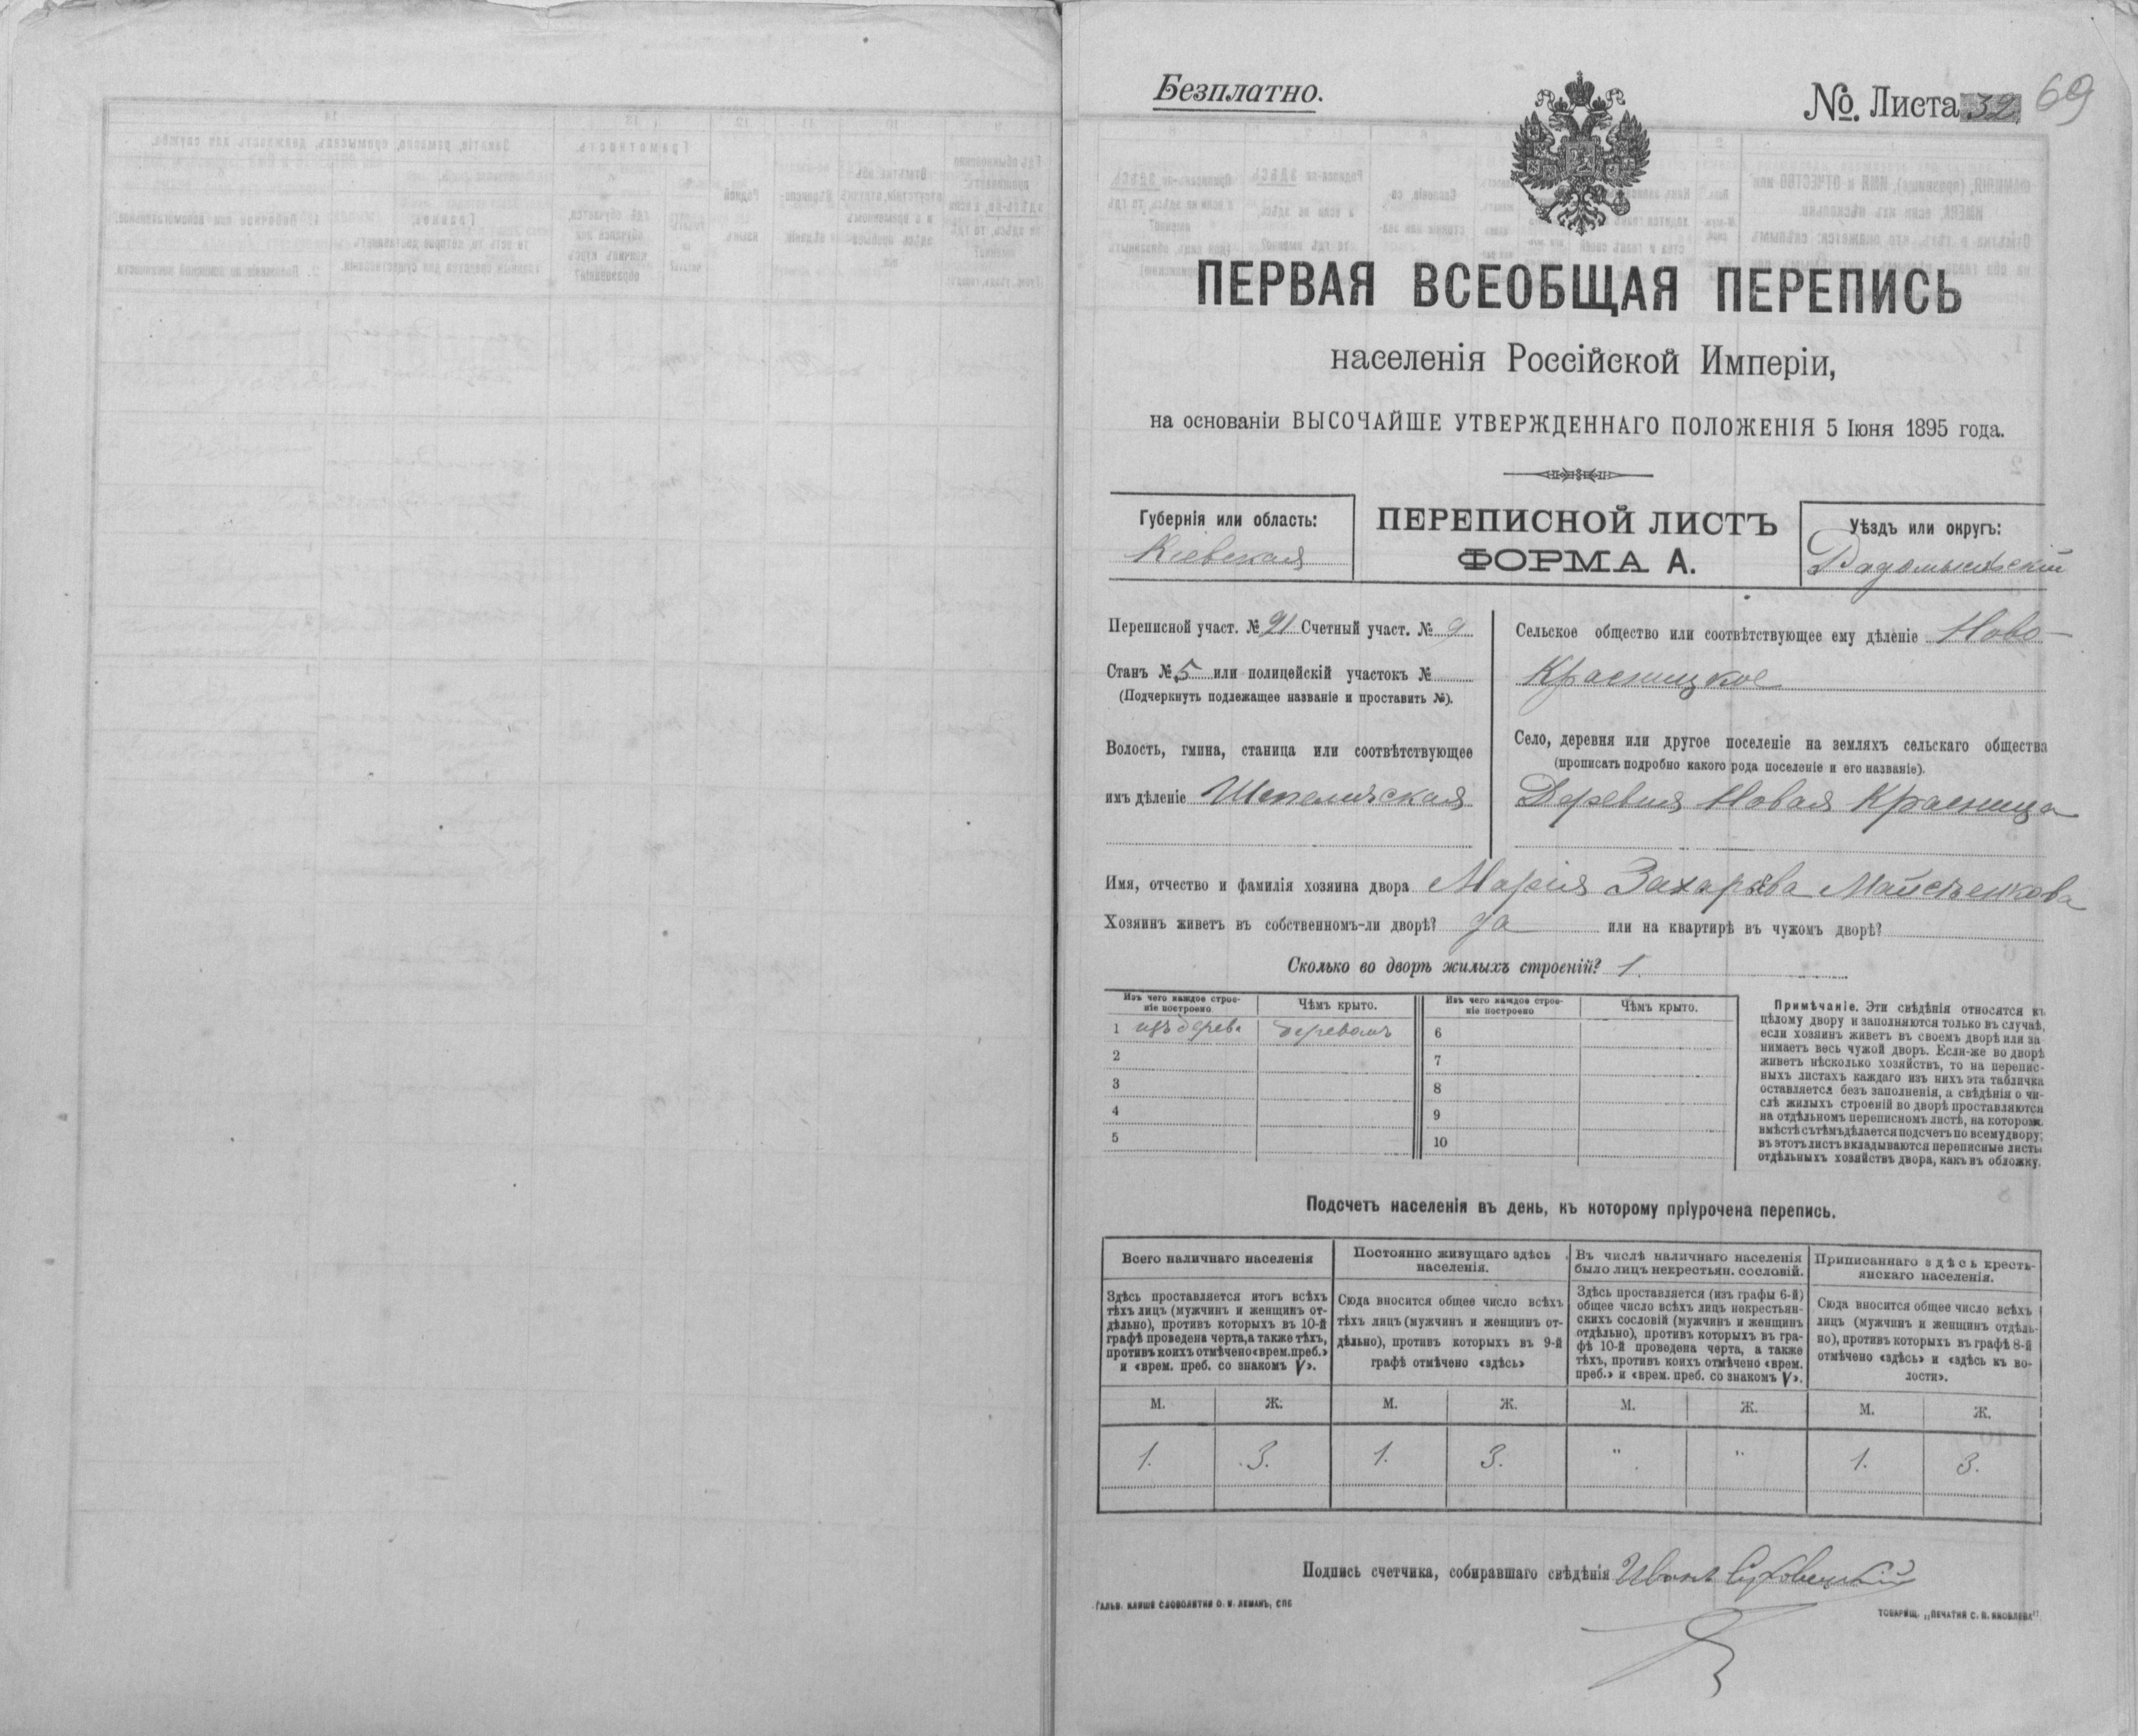 Безплатно.
№. Листа 32. 69
ПЕРВАЯ ВСЕОБЩАЯ ПЕРЕПИСЬ
населенія Россійской Имперіи,
на основаніи ВЫСОЧАЙШЕ УТВЕРЖДЕННАГО ПОЛОЖЕНІЯ 5 Іюня 1895 года.
Губернія или область:
Кіевская
ПЕРЕПИСНОЙ ЛИСТЪ
ФОРМА А.
Уѣздъ или округъ:
Радомысльскій
Переписной участ. № 21 Счетный участ. № 9
Станъ № 5 или полицейскій участокъ №
(Подчеркнуть подлежащее названіе и проставить №).
Волость, гмина, станица или соотвѣтствующее
имъ дѣленіе Шепеличская
Сельское общество или соотвѣтствующее ему дѣленіе Ново-
Красницкое
Село, деревня или другое поселеніе на земляхъ сельскаго общества
(прописать подробно какого рода поселеніе и его названіе).
Деревня Новая Красница
Имя, отчество и фамилія хозяина двора Марія Захарьева Майстренкова
Хозяинъ живетъ въ собственномъ-ли дворѣ? да или на квартирѣ въ чужомъ дворѣ?
Сколько во дворѣ жилыхъ строеній? 1.
Изъ чего каждое строе-
ніе построено
Чѣмъ крыто.
Изъ чего каждое строе-
ніе построено
Чѣмъ крыто.
1 изъ дерева деревомъ 6
2 7
3 8
4 9
5 10
Примѣчаніе. Эти свѣдѣнія относятся къ
цѣлому двору и заполняются только въ случаѣ,
если хозяинъ живетъ въ своемъ дворѣ или за
нимаетъ весь чужой дворъ. Если-же во дворѣ
живетъ нѣсколько хозяйствъ, то на перепис-
ныхъ листахъ каждаго изъ нихъ эта табличка
оставляется безъ заполненія, а свѣдѣнія о чи-
слѣ жилыхъ строеній во дворѣ проставляются
на отдѣльномъ переписномъ листѣ, на которомъ
вмѣстѣ съ тѣмъ дѣлается подсчетъ по всему двору;
въ этотъ листъ вкладываются переписные листы
отдѣльныхъ хозяйствъ двора, какъ въ обложку.
Подсчетъ населенія въ день, къ которому пріурочена перепись.
Всего наличнаго населенія
Здѣсь проставляется итогъ всѣхъ
тѣхъ лицъ (мужчинъ и женщинъ от-
дѣльно), противъ которыхъ въ 10-й
графѣ проведена черта, а также тѣхъ,
противъ коихъ отмѣчено «врем. преб.»
и «врем. преб. со знакомъ V».
Постоянно живущаго здѣсь
населенія.
Сюда вносится общее число всѣхъ
тѣхъ лицъ (мужчинъ и женщинъ от-
дѣльно), противъ которыхъ въ 9-й
графѣ отмѣчено «здѣсь»
Въ числѣ наличнаго населенія
было лицъ некрестьян. сословій.
Здѣсь проставляется (изъ графы 6-й)
общее число всѣхъ лицъ некрестьян-
скихъ сословій (мужчинъ и женщинъ
отдѣльно), противъ которыхъ въ гра-
фѣ 10-й проведена черта, а также
тѣхъ, противъ коихъ отмѣчено «врем.
преб.» и «врем. преб. со знакомъ V».
Приписаннаго здѣсь кресть-
янскаго населенія.
Сюда вносится общее число всѣхъ
лицъ (мужчинъ и женщинъ отдѣль-
но), противъ которыхъ въ графѣ 8-й
отмѣчено «здѣсь» и «здѣсь къ во-
лости».
М. Ж. М. Ж. М. Ж. М. Ж.
1. 3. 1. 3. " " 1. 3.
Подпись счетчика, собиравшаго свѣдѣнія Иванъ
ГАЛЬВ. КЛИШЕ СЛОВОЛИТНИ О. И. ЛЕМАНЪ, СПБ
ТОВАРИЩ. „ПЕЧАТНЯ С. П. ЯКОВЛЕВА".